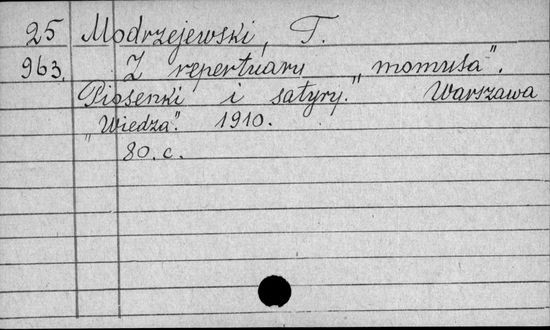 25 Modrzejewski, T.
963. Z repertuaru „momusa".
Piosenki i satyry. Warszawa
„Wiedza". 1910.
80. c.